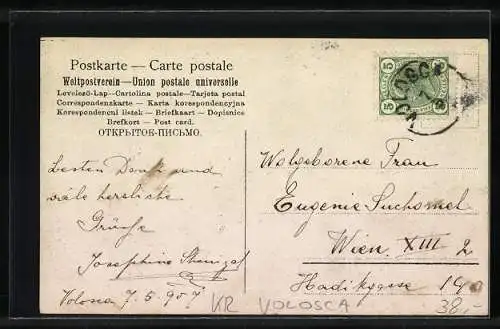 Postkarte — Carte postale
Weltpostverein—Union postale universelle
Levelező-Lap—Cartolina postale—Tarjeta postal
Correspondenzkarte — Karta korespondencyjna
Korespondencni listek — Briefkaart — Dopisnice
Brefkort — Post card.
ОТКРЫТОЕ-ПИСЬМО.
5 5
VOLOSCA
Besten Dank und
viele herzliche
Grüsse
Josephine
Volosca 7.5.907
Wolgeborene Frau
Eugenie Suchomel
Wien XIII 2
Hadikgasse 140
KR VOLOSCA
38,-